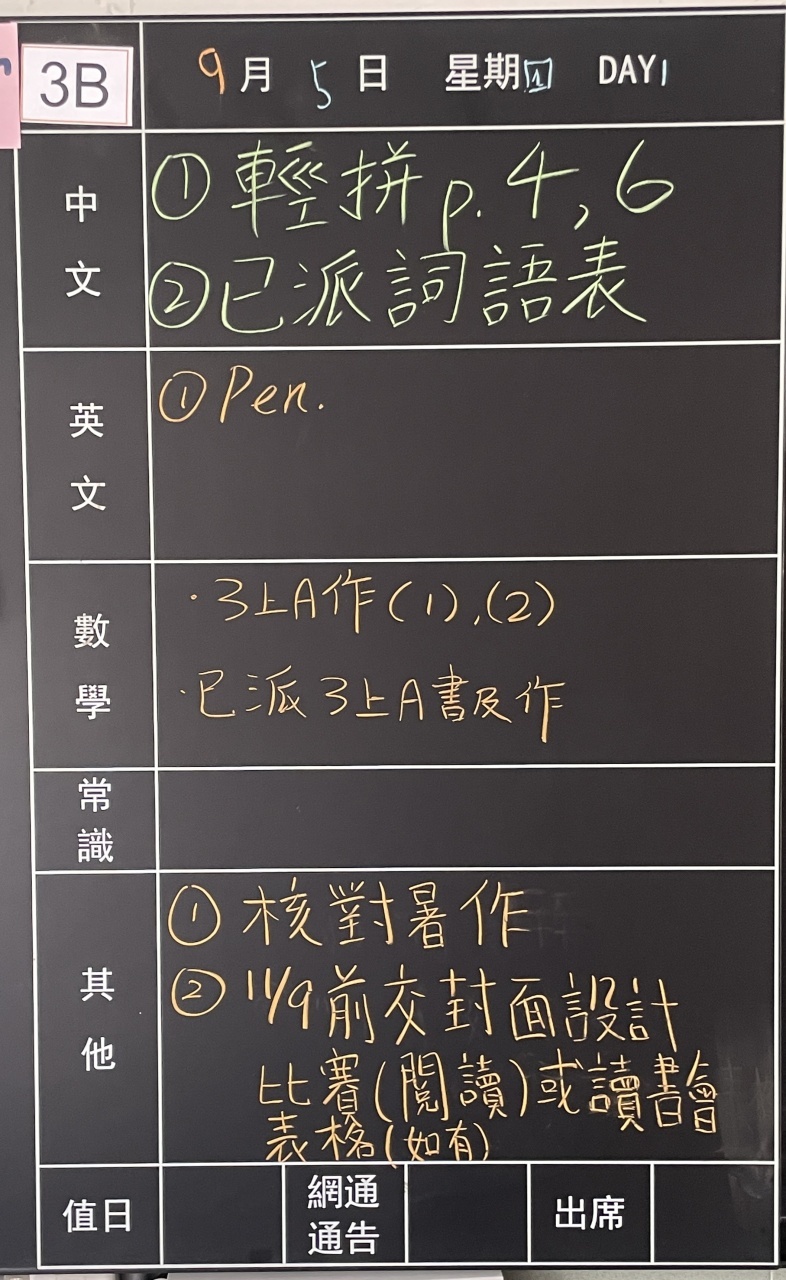 3B
9月5日 星期四 DAY1
中文
①輕拼p.4,6
②已派詞語表
英文
①Pen.
數學
·3上A作(1),(2)
·已派3上A書及作
常識
其他
①核對暑作
②11/9前交封面設計
比賽(閱讀)或讀書會
表格(如有)
值日
網通
通告
出席